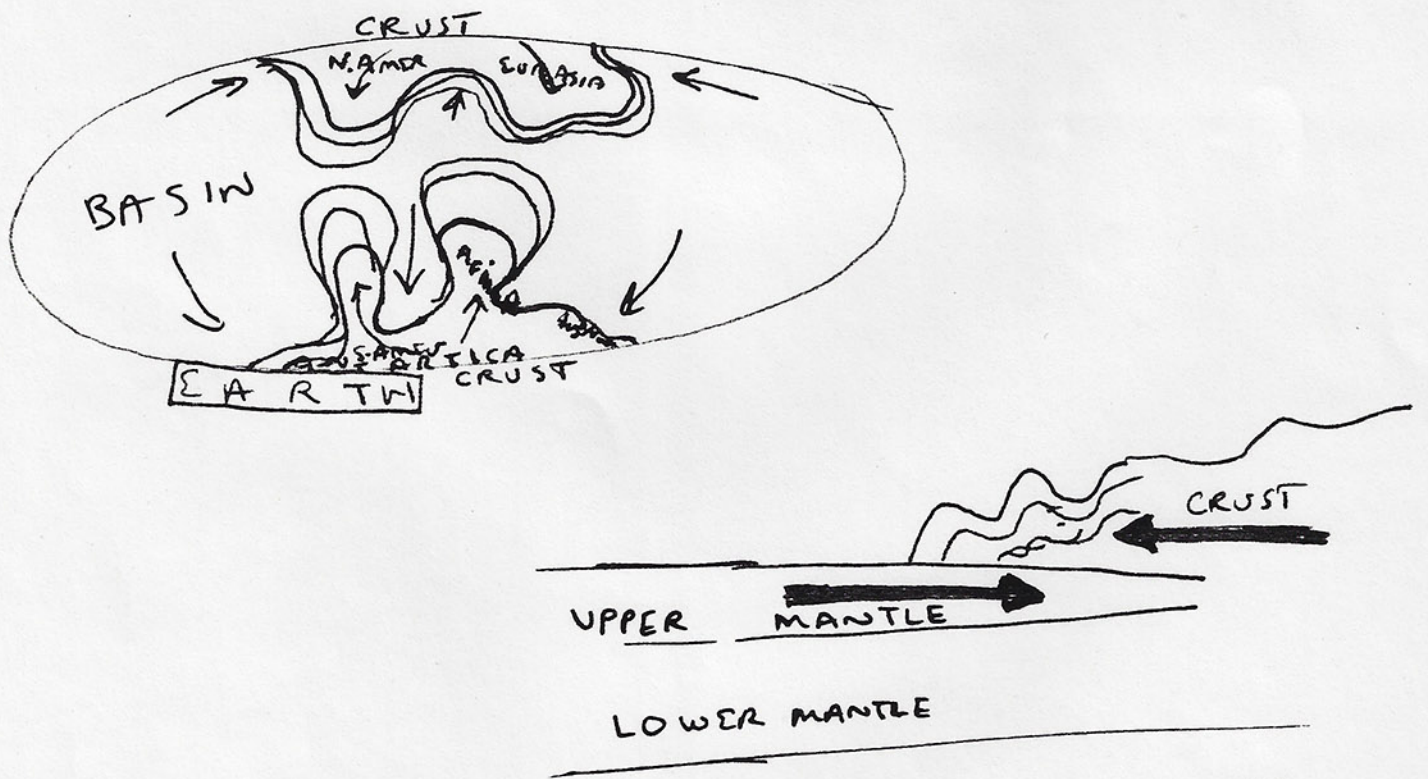 CRUST
N. AMER
EURASIA
BASIN
S. AMER
CRUST
EARTH
CRUST
UPPER MANTLE
LOWER MANTLE